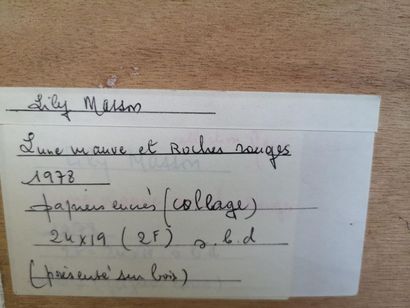 Lily Masson
Lune mauve et Roches rouges
1978
papiers encrés (collage)
24x19 (2F) s.b.d
(présenté sur bois)